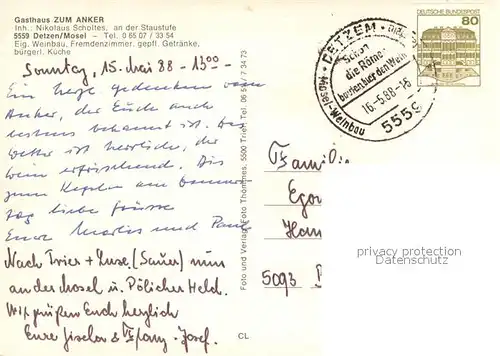 Gasthaus ZUM ANKER
Inh. Nikolaus Scholtes, an der Staustufe
5559 Detzen/Mosel – Tel. 0 65 07 / 33 54
Eig. Weinbau, Fremdenzimmer, gepfl. Getränke,
bürgerl. Küche
Sonntag, 15. Mai 88 - 13⁰⁰ -
Anker, der Euch auch
bestens bekannt ist. Das
Wetter ist herrlich, der
Wein erfrischend. Bis
zum Kegeln am
tag liebe Grüsse
Eure Marlies und Paul
Nach Trier + (Sauer) nun
an der Mosel u. Pölicher Held.
Wir grüßen Euch herzlich
Eure & Franz-Josef.
Foto und Verlag: Foto Thommes, 5500 Trier, Tel. 06 51 / 7 34 73
CL
DETZEM
Schon
die Römer
bauten hier den Wein
16.-5.88-16
Mosel-Weinbau
5559
DEUTSCHE BUNDESPOST
80
Familie
5093
privacy protection
Datenschutz